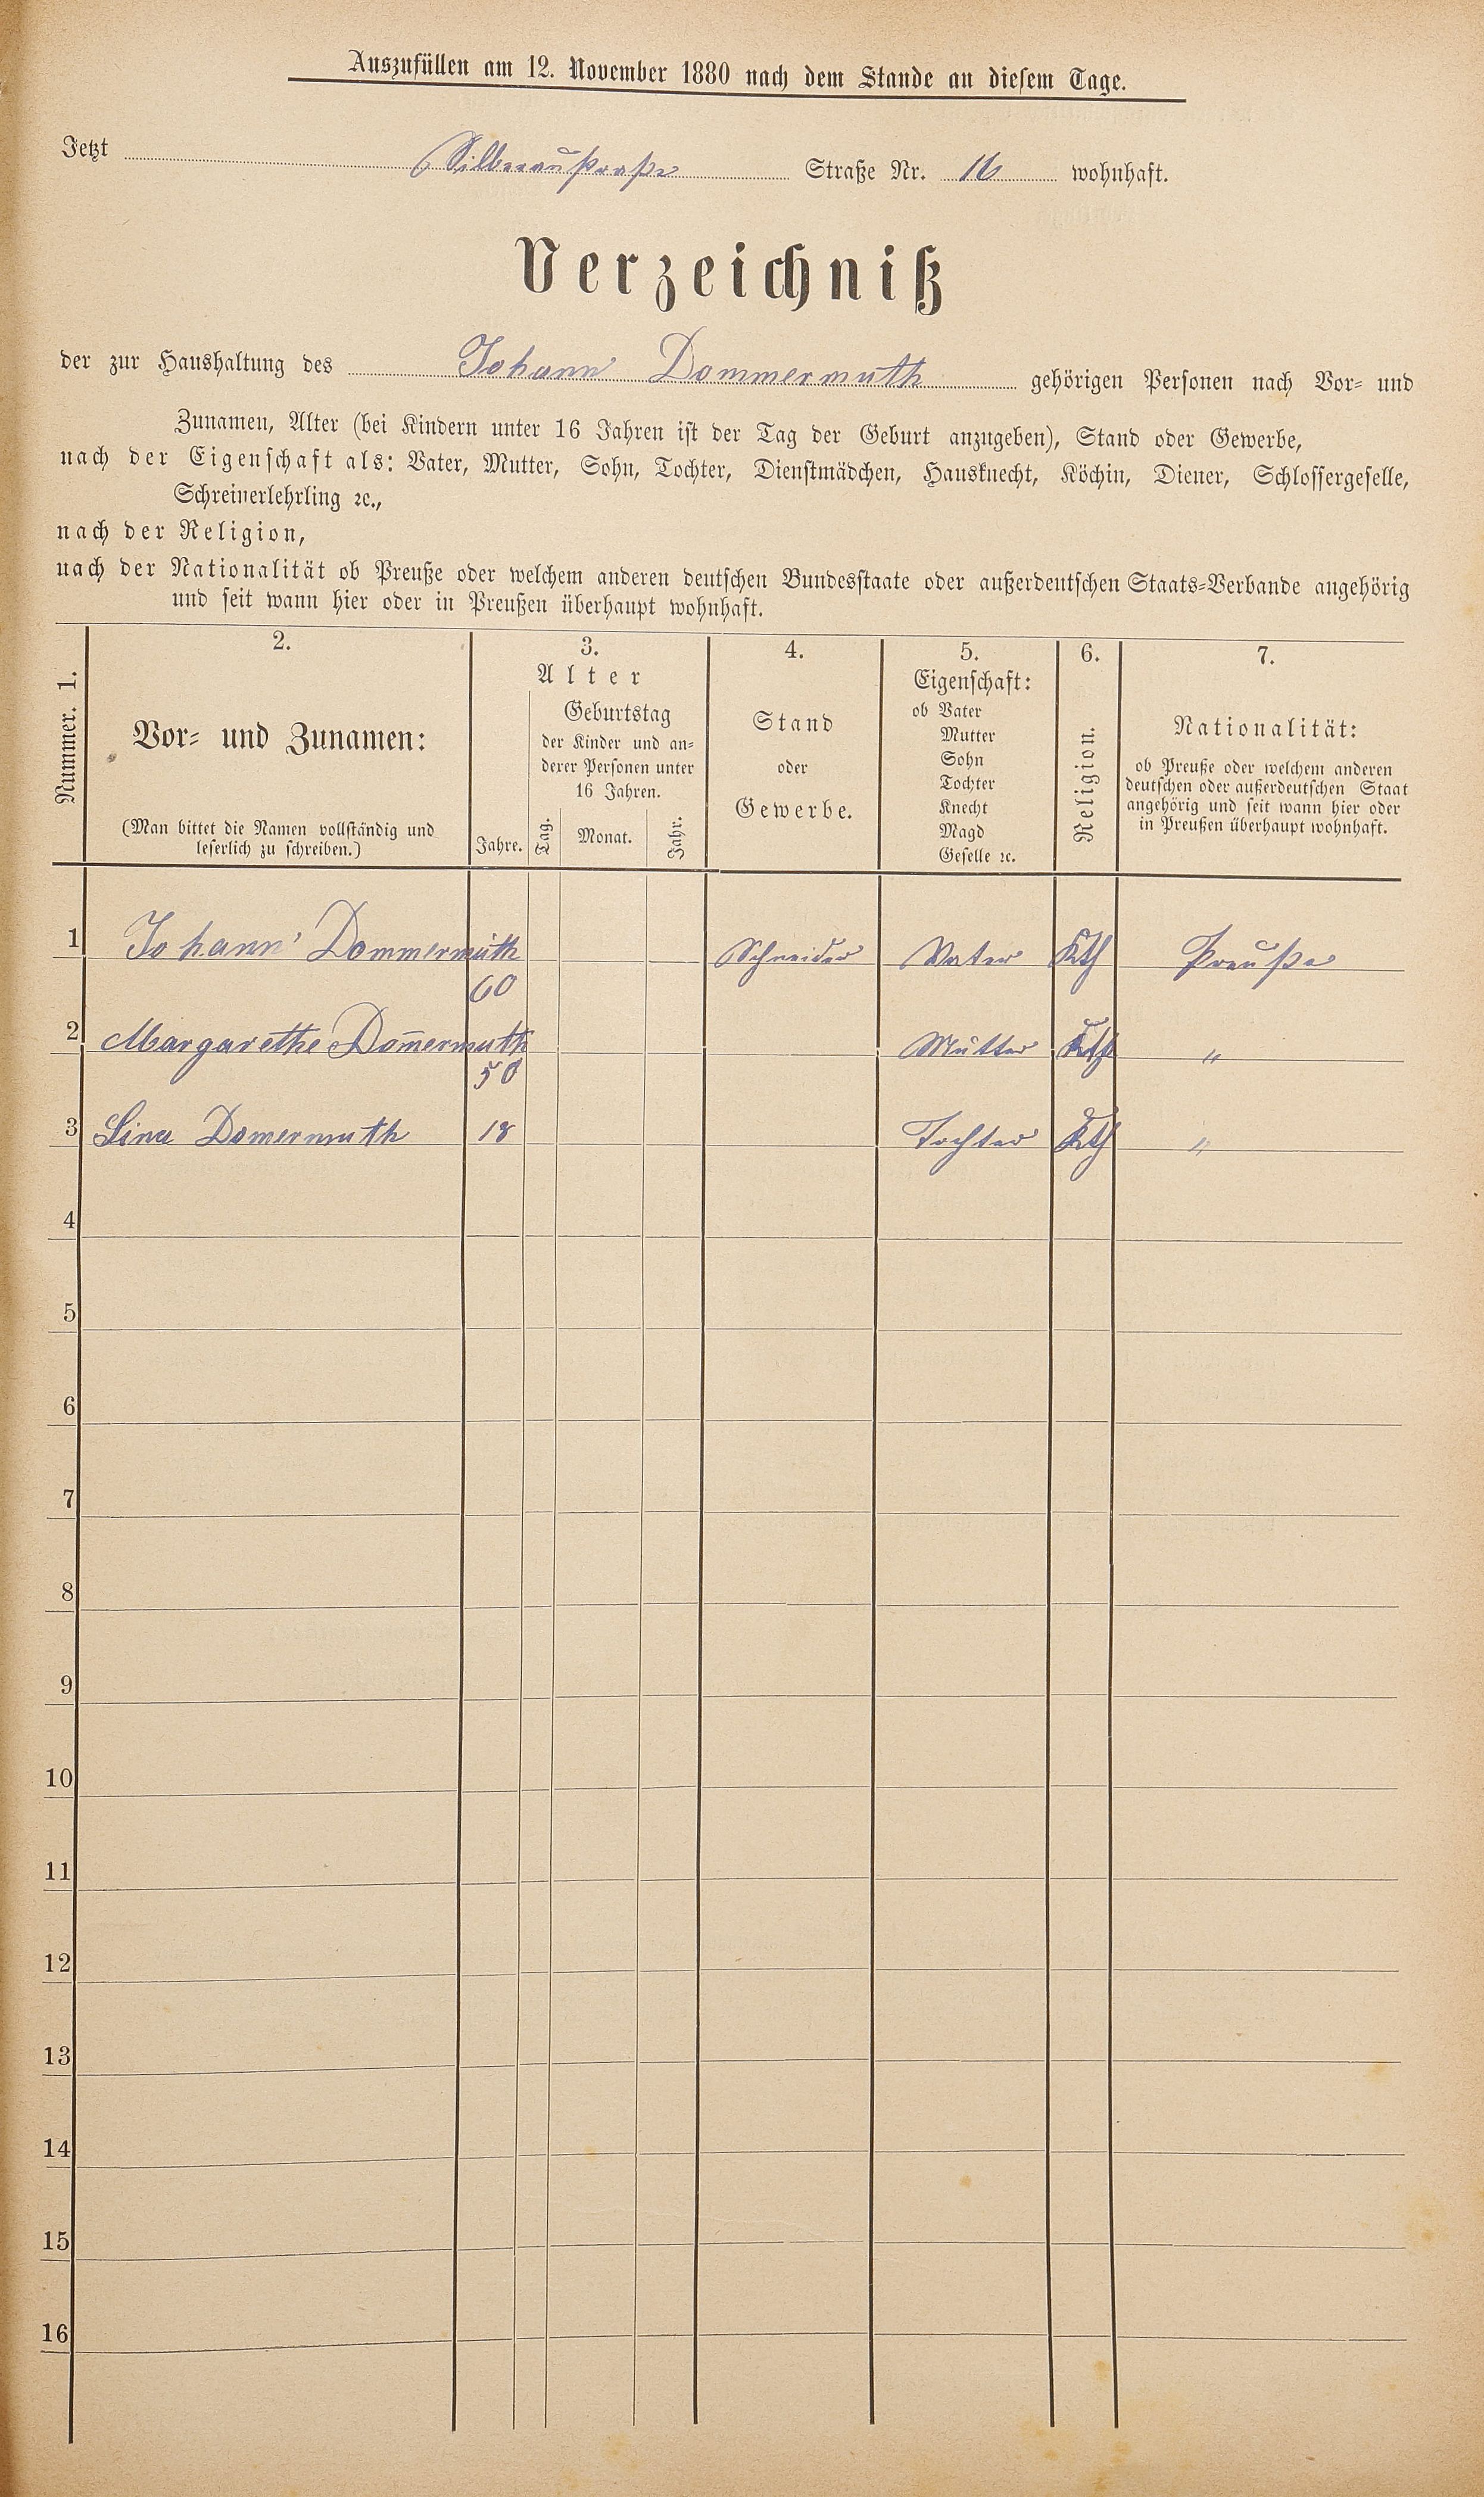 Auszufüllen am 12. November 1880 nach dem Stande an diesem Tage.
Jetzt Silberaustraße Straße Nr. 16 wohnhaft.
Verzeichniß
der zur Haushaltung des Johann Dommermuth gehörigen Personen nach Vor- und
Zunamen, Alter (bei Kindern unter 16 Jahren ist der Tag der Geburt anzugeben), Stand oder Gewerbe,
nach der Eigenschaft als: Vater, Mutter, Sohn, Tochter, Dienstmädchen, Hausknecht, Köchin, Diener, Schlossergeselle,
Schreinerlehrling ꝛc.,
nach der Religion,
nach der Nationalität ob Preuße oder welchem anderen deutschen Bundesstaate oder außerdeutschen Staats-Verbande angehörig
und seit wann hier oder in Preußen überhaupt wohnhaft.
Nummer. 1.
2.
Vor- und Zunamen:
(Man bittet die Namen vollständig und
leserlich zu schreiben.)
3.
Alter
Jahre.
Geburtstag
der Kinder und an-
derer Personen unter
16 Jahren.
Tag.
Monat.
Jahr.
4.
Stand
oder
Gewerbe.
5.
Eigenschaft:
ob Vater
Mutter
Sohn
Tochter
Knecht
Magd
Geselle ꝛc.
6.
Religion.
7.
Nationalität:
ob Preuße oder welchem anderen
deutschen oder außerdeutschen Staat
angehörig und seit wann hier oder
in Preußen überhaupt wohnhaft.
1 Johann Dommermuth 60 Schneider Vater Kth Preuße
2 Margarethe Dom̅ermuth 50 Mutter Kth "
3 Lina Domermuth 18 Tochter Kth "
4
5
6
7
8
9
10
11
12
13
14
15
16